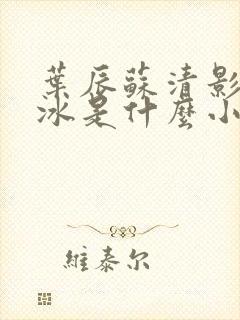 葉辰蘇清影
冰是什麼小
維泰尔